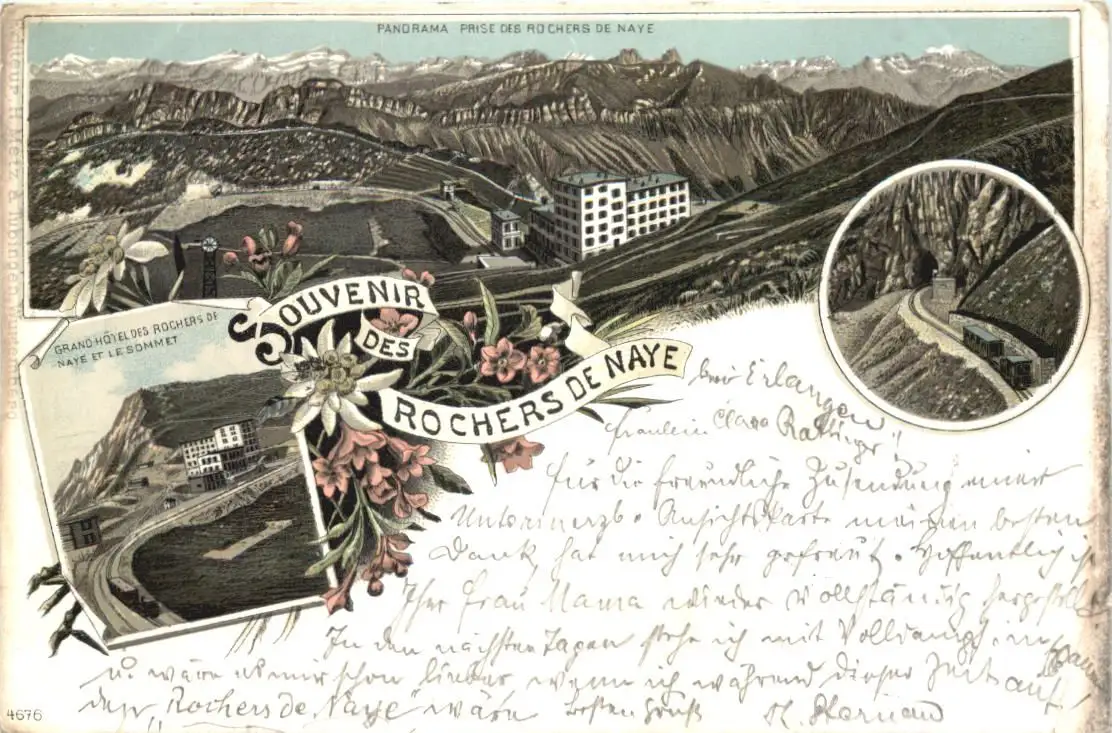 PANORAMA PRISE DES ROCHERS DE NAYE
GRAND-HÔTEL DES ROCHERS DE
NAYE ET LE SOMMET
SOUVENIR
DES
ROCHERS DE NAYE
Erlangen
Fräulein Clara
für die freundliche Zusendung einer
Ansichtskarte meinen besten
Dank, hat mich sehr gefreut. Hoffentlich ist
Ihre Frau Mama wieder vollständig hergestellt
In den nächsten Tagen stehe ich mit Volldampf im
u. wäre es mir schon lieber wenn ich während dieser Zeit auf
den "Rochers de Naye" wäre besten Gruß
4676